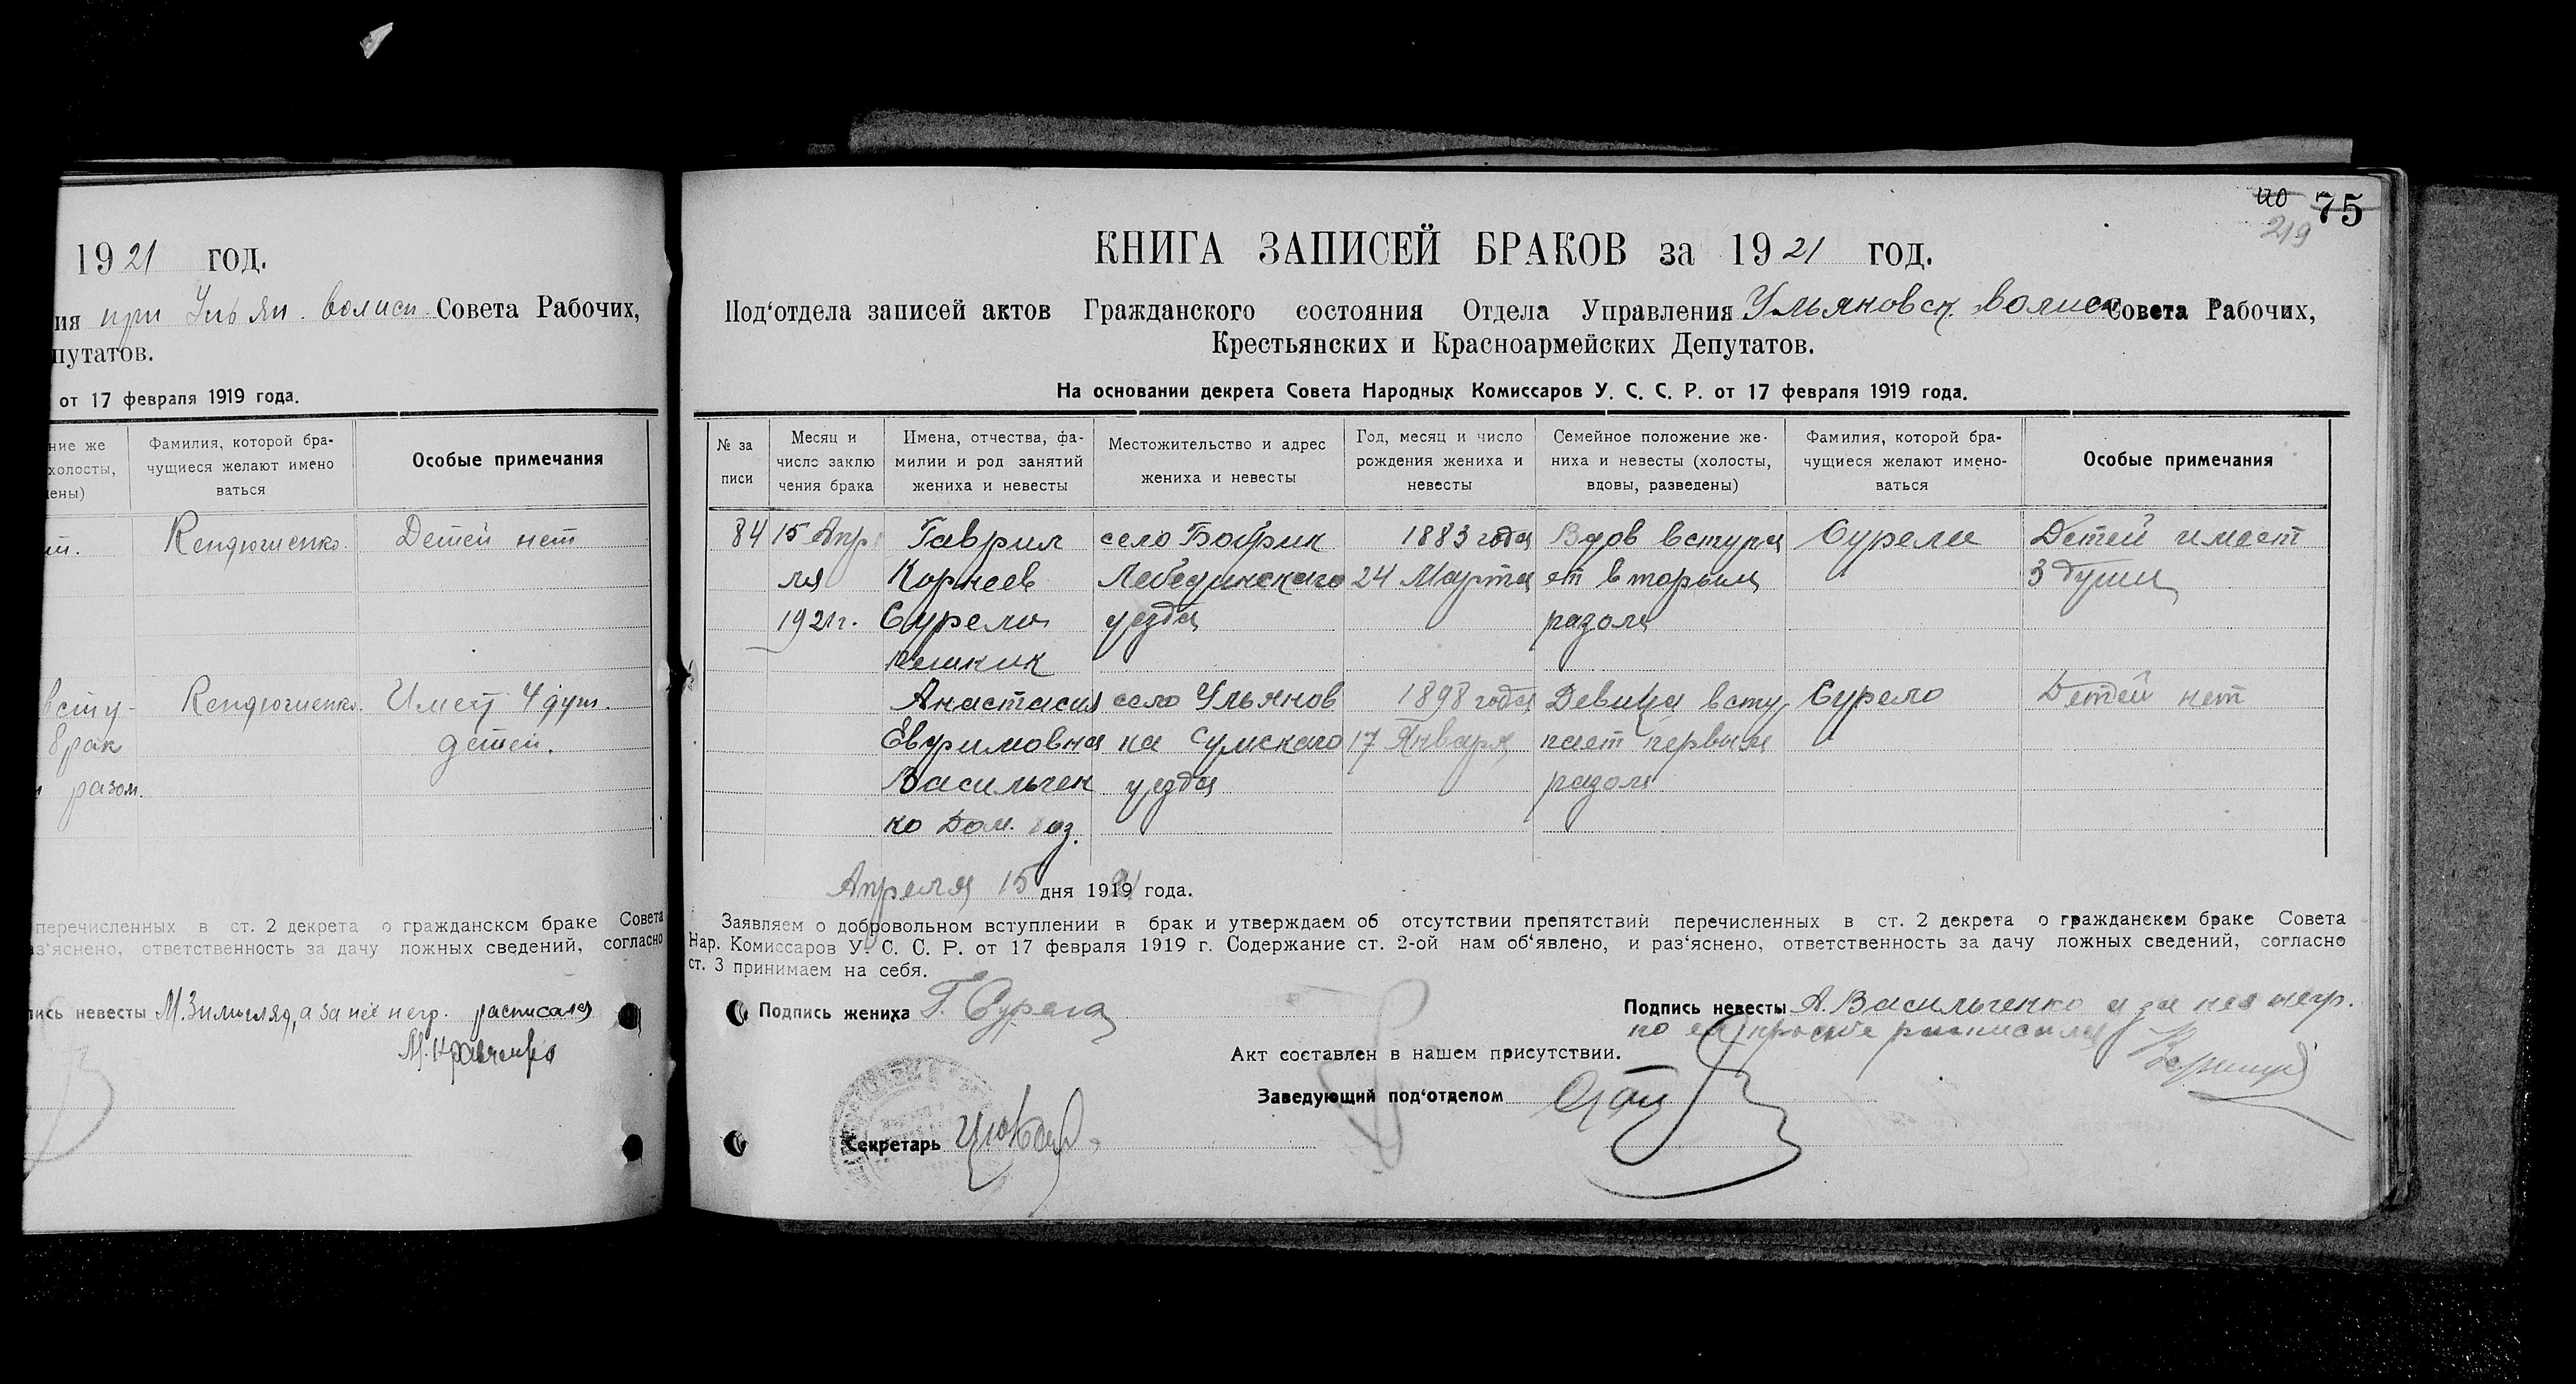 1921 год.
ия при Ульян. волисп. Совета Рабочих,
путатов.
от 17 февраля 1919 года.
ние же
холосты,
ены)
Фамилия, которой бра-
чущиеся желают имено
ваться
Особые примечания
Детей нет
всту-
Имеет 4 душ.
брак
детей.
разом.
перечисленных в ст. 2 декрета о гражданском браке Совета
аз'яснено, ответственность за дачу ложных сведений, согласно
пись невесты а за неё негр. расписался
М. Кравченко
40 75
219
КНИГА ЗАПИСЕЙ БРАКОВ за 1921 год.
Под'отдела записей актов Гражданского состояния Отдела Управления Ульяновск. волисп Совета Рабочих,
Крестьянских и Красноармейских Депутатов.
На основании декрета Совета Народных Комиссаров У. С. С. Р. от 17 февраля 1919 года.
№ за
писи
Месяц и
число заклю
чения брака
Имена, отчества, фа-
милии и род занятий
жениха и невесты
Местожительство и адрес
жениха и невесты
Год, месяц и число
рождения жениха и
невесты
Семейное положение же-
ниха и невесты (холосты,
вдовы, разведены)
Фамилия, которой бра-
чущиеся желают имено-
ваться
Особые примечания
84 15 Апре Гаврил село Бобрик 1883 года Вдов вступа Сурело Детей имеет
ля Корнеев Лебединскаго 24 Марта ет вторым 3 души
1921 г. Сурело уезда разом
Анастасия село Ульянов 1898 года Девица всту Сурело Детей нет
Евфимовна ка Сумскаго 17 Января пает первым
Васильчен уезда разом
ко Дом. хоз.
Апреля 15 дня 1921 года.
Заявляем о добровольном вступлении в брак и утверждаем об отсутствии препятствий перечисленных в ст. 2 декрета о гражданскем браке Совета
Нар. Комиссаров У. С. С. Р. от 17 февраля 1919 г. Содержание ст. 2-ой нам об'явлено, и раз'яснено, ответственность за дачу ложных сведений, согласно
ст. 3 принимаем на себя.
Подпись жениха Г. Сурела
Подпись невесты А. Васильченко а за нея негр.
по ея просьбе расписался
Акт составлен в нашем присутствии.
Заведующий под'отделом
Секретарь